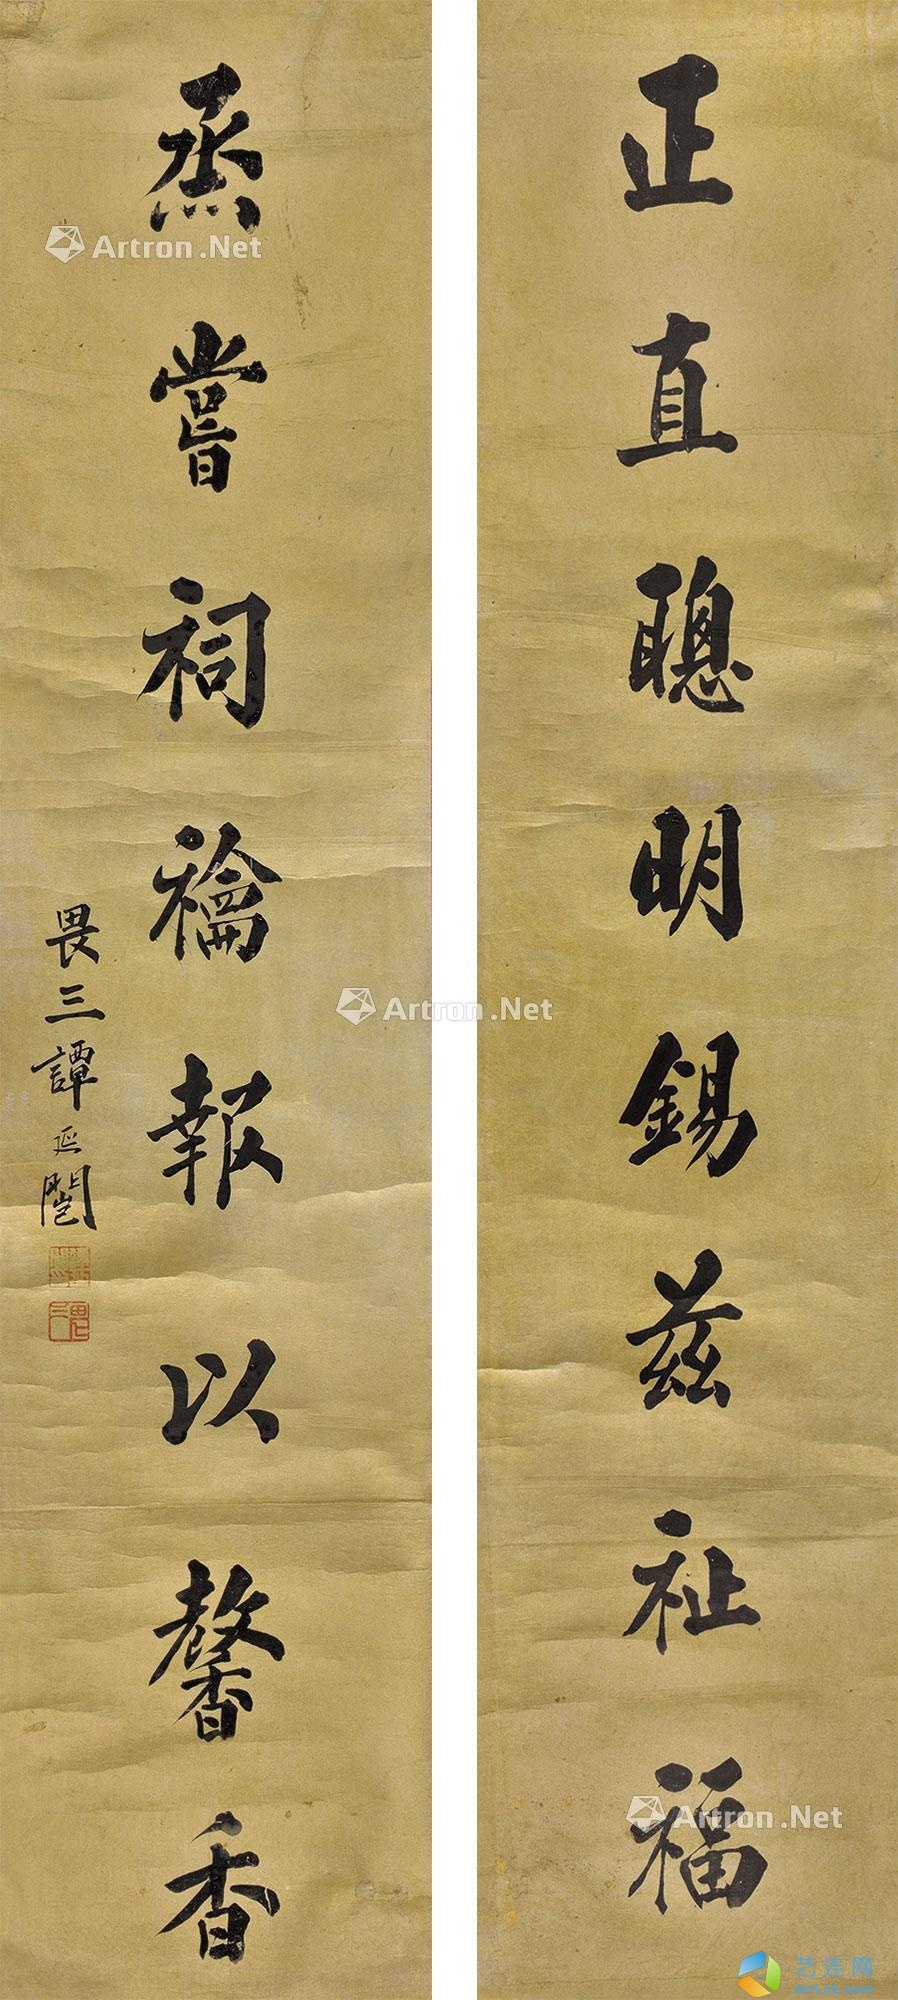 正直聰明錫茲祉福
烝嘗祠禴報以馨香
畏三譚延闓
Artron.Net
Artron.Net
Artron.Net
艺连网